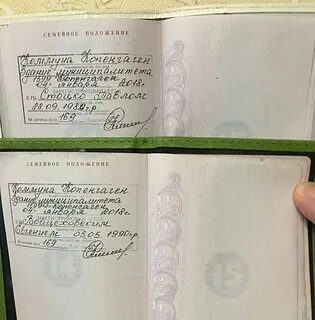 СЕМЕЙНОЕ ПОЛОЖЕНИЕ
Коммуна Копенгаген
Здание муниципалитета
1599 Копенгаген
04 января 2018г.
с гр. Стоцко Павлом
1989г.р
169
СЕМЕЙНОЕ ПОЛОЖЕНИЕ
Коммуна Копенгаген
Здание муниципалитета
1599 Копенгаген
04 января 2018г.
Войцеховским
Евгением 03.05 1990г.р.
169